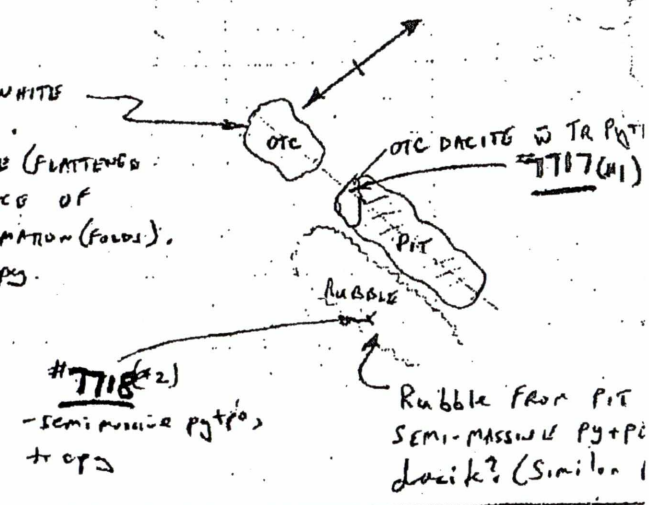 WHITE
OTC
E (FLATTENED
CE OF
MATION (FOLDS).
py.
OTC DACITE w̄ TR Py
#7717 (#1)
PIT
RUBBLE
#7718 (#2)
- semi massive py+po,
tr cpy
Rubble FROM PIT
SEMI-MASSIVE Py+P
dacite? (Similar